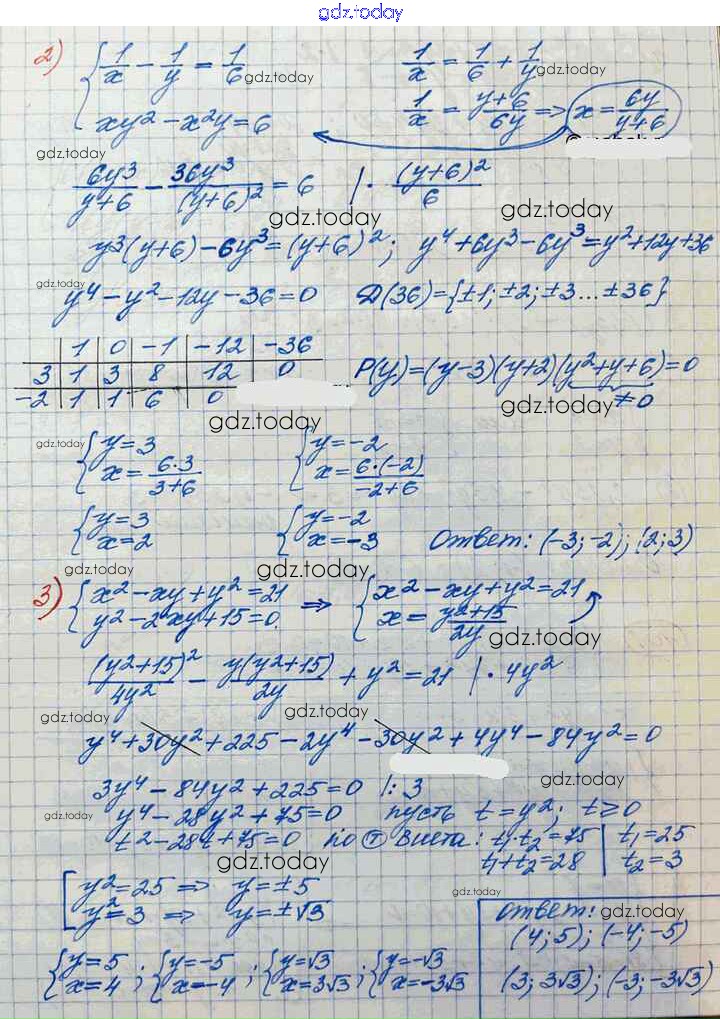 gdz.today
2) { 1/x - 1/y = 1/6 gdz.today 1/x = 1/6 + 1/y gdz.today
xy² - x²y = 6 1/x = (y+6)/6y => x = 6y/(y+6)
gdz.today
6y³/(y+6) - 36y³/(y+6)² = 6 | · (y+6)²/6
gdz.today gdz.today
y³(y+6) - 6y³ = (y+6)²; y⁴+6y³-6y³=y²+12y+36
gdz.today gdz.today
y⁴ - y² - 12y - 36 = 0 D(36)={±1; ±2; ±3 ... ±36}
1 0 -1 -12 -36
3 1 3 8 12 0 P(y)=(y-3)(y+2)(y²+y+6)=0
-2 1 1 6 0 ≠0
gdz.today gdz.today
gdz.today { y=3 { y=-2
x = 6·3/(3+6) x = 6·(-2)/(-2+6)
{ y=3 { y=-2
x=2 x=-3 Ответ: (-3;-2); (2;3)
gdz.today gdz.today gdz.today
3) { x² - xy + y² = 21 => { x² - xy + y² = 21
y² - 2xy + 15 = 0. x = (y²+15)/2y
gdz.today
(y²+15)²/4y² - y(y²+15)/2y + y² = 21 | · 4y²
gdz.today gdz.today
y⁴ + 30y² + 225 - 2y⁴ - 30y² + 4y⁴ - 84y² = 0
3y⁴ - 84y² + 225 = 0 |:3 gdz.today
gdz.today y⁴ - 28y² + 75 = 0 пусть t = y²; t ≥ 0
t² - 28t + 75 = 0 по Т Виета: t₁·t₂ = 75 | t₁ = 25
t₁+t₂ = 28 | t₂ = 3
gdz.today
[ y² = 25 => y = ±5
y² = 3 => y = ±√3
gdz.today Ответ: gdz.today
(4;5); (-4;-5)
{ y=5 ; { y=-5 ; { y=√3 ; { y=-√3
x=4 x=-4 x=3√3 x=-3√3
(3; 3√3); (-3; -3√3)
gdz.today gdz.today gdz.today